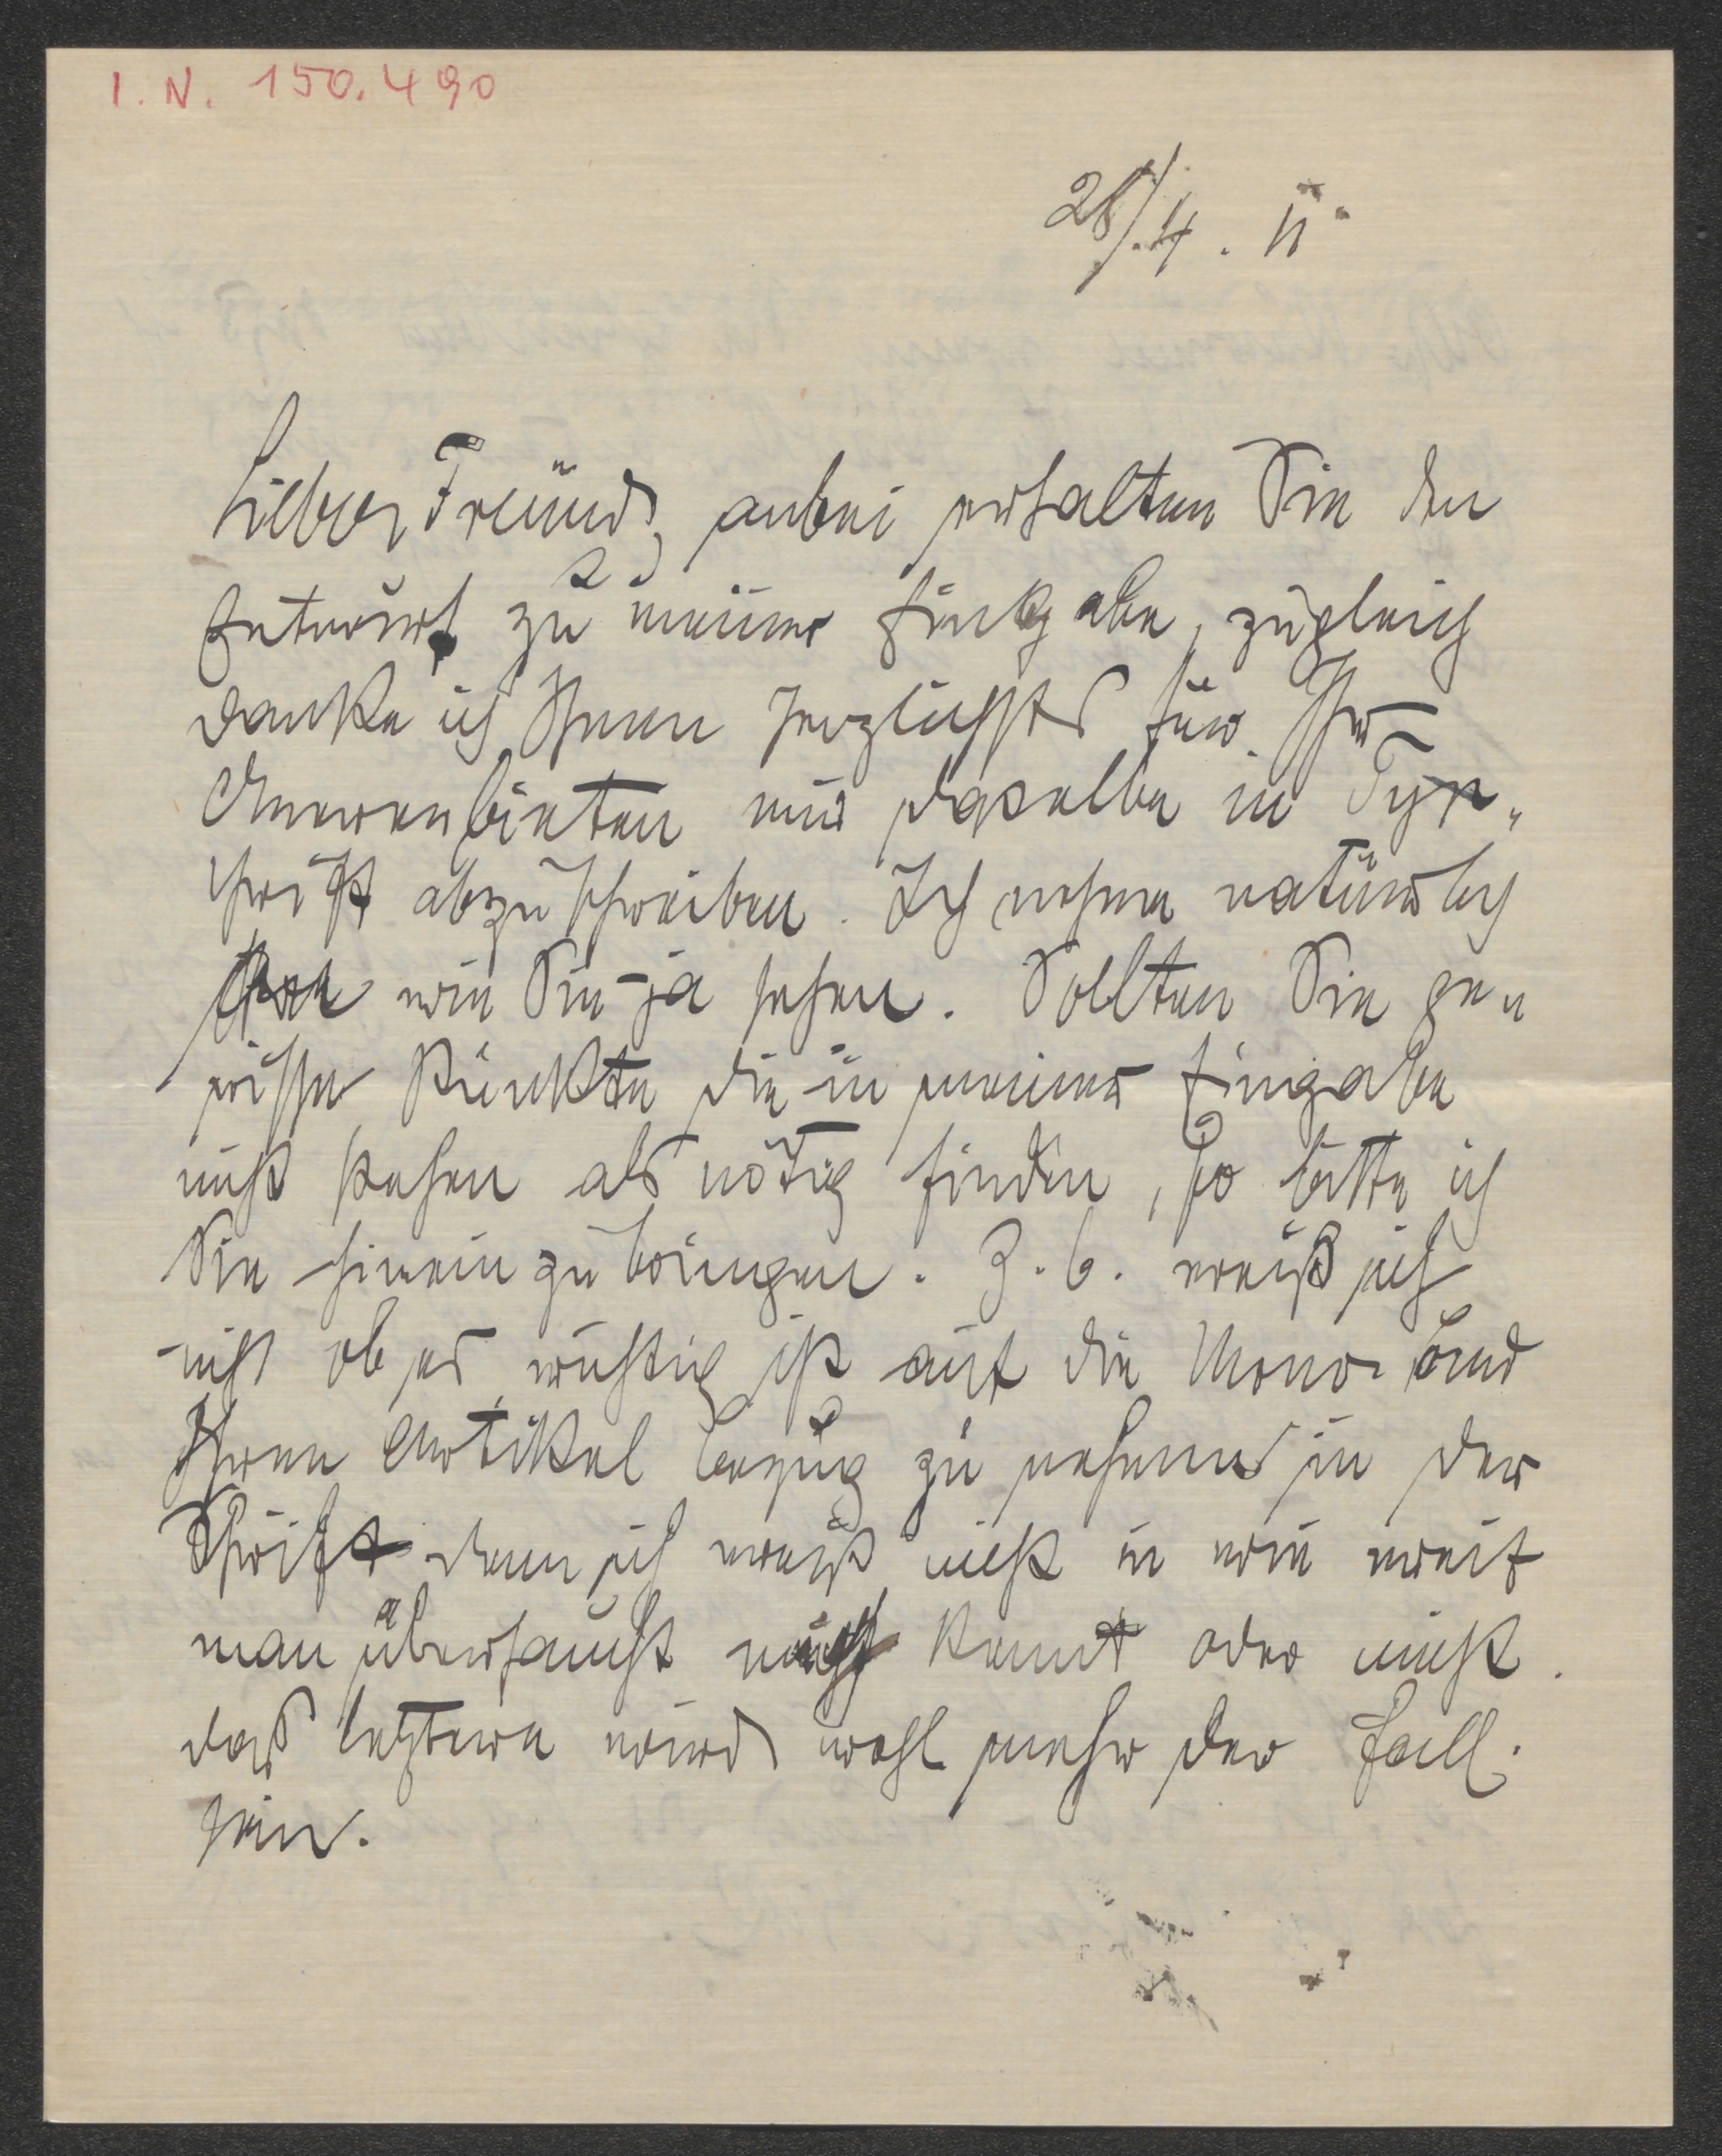 I. N. 150.490
28/.4. 11.
Lieber Freund, anbei erhalten Sie den
Entwurf zu meiner Eingabe, zugleich
danke ich Ihnen herzlichst für Ihr
Anerenbieten mir dasselbe in Typ„
schrift abzuschreiben. Ich nehme natürlich
wie Sie ja sehen. Sollten Sie ge„
wisse Punkte die in meiner Eingabe
nicht stehen als nötig finden, so bitte ich
Sie hineinzubringen. Z.b. weiß ich
nicht ob es wichtig ist auf die und
Ihren Artikel bezug zu nehmen in der
Schrift denn ich weiß nicht in wie weit
man überhaupt mich kennt oder nicht.
das letztere wird wohl mehr der Fall.
sein.